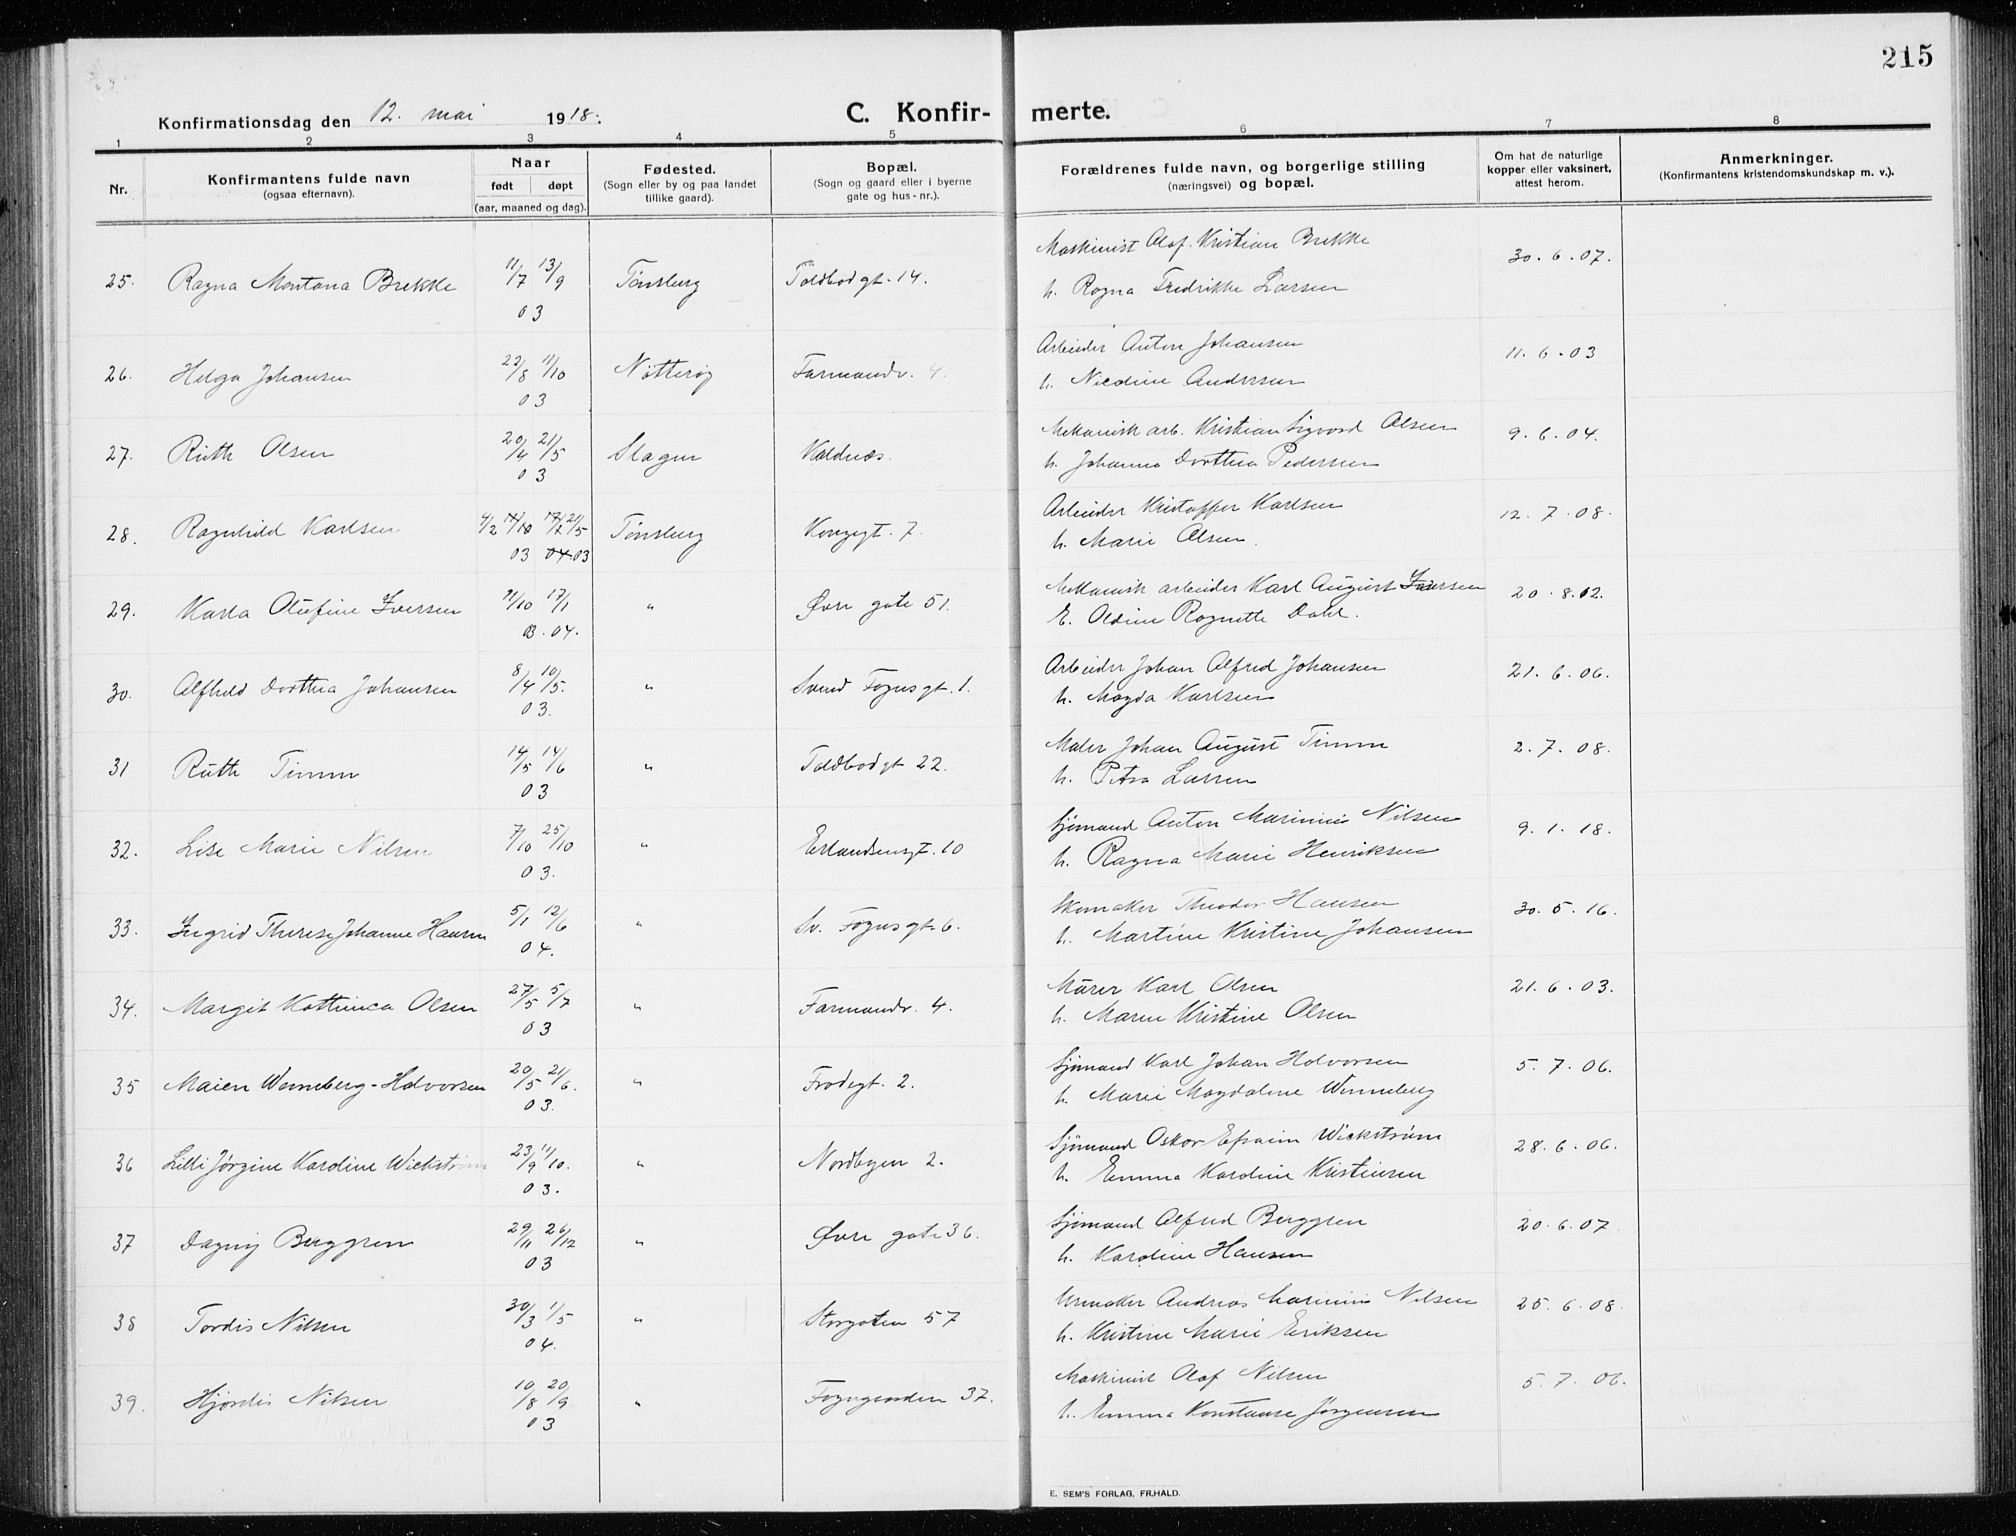 215
Konfirmationsdag den 12. mai 1918.
C. Konfir- merte.
1 2 3 4 5 6 7 8
Nr.
Konfirmantens fulde navn
(ogsaa efternavn).
Naar
født døpt
(aar, maaned og dag).
Fødested.
(Sogn eller by og paa landet
tillike gaard).
Bopæl.
(Sogn og gaard eller i byerne
gate og hus-nr.).
Forældrenes fulde navn, og borgerlige stilling
(næringsvei) og bopæl.
Om hat de naturlige
kopper eller vaksinert,
attest herom.
Anmerkninger.
(Konfirmantens kristendomskundskap m. v.).
Maskinist Olaf Kristian Brekke
25. Ragna Montana Brekke 11/7 13/9 Tønsberg Toldbodgt. 14. 30.6.07.
03
h. Ragna Fredrikke Larsen
Arbeider Anton Johansen
26. Helga Johansen 22/8 11/10 Nøtterøy Farmandv. 4. 11.6.03
03
h. Nicoline Andersen
Mekanisk arb. Kristian Sigvard Olsen
27. Ruth Olsen 20/4 21/5 Slagen Kaldnæs. 9.6.04.
03
h. Johanna Dorthea Pedersen
Arbeider Kristoffer Karlsen
28. Ragnhild Karlsen 4/2 14/10 17/2 21/5 Tønsberg Kongegt. 7. 12.7.08.
03 04 03
h. Marie Olsen.
Mekanisk arbeider Karl August Iversen
29. Karla Olufine Iversen 11/10 17/1 " Øvre gate 51. 20.8.02.
03. 04.
E. Oldine Ragnette Dahl.
Arbeider Johan Alfred Johansen
30. Alfhild Dorthea Johansen 8/4 10/5. " Svend Foynsgt. 1. 21.6.06.
03.
h. Magda Karlsen
Maler Johan August Timm
31 Ruth Timm 14/5 14/6 " Toldbodgt 22. 2.7.08.
03
h. Petra Larsen
Sjømand Anton Marinius Nilsen
32. Lise Marie Nilsen 7/10 25/10 " Erlandsensgt. 10 9.1.18.
03.
h. Ragna Marie Henriksen
Skomaker Theodor Hansen
33. Ingrid Therese Johanne Hansen 5/1 12/6 " Sv. Foynsgt. 6. 30.5.16.
04.
h. Martine Kristine Johansen
Murer Karl Olsen
34. Margit Kathinca Olsen 27/5 5/7 " Farmandv. 4. 21.6.03.
03
h. Maren Kristine Olsen
Sjømand Karl Johan Halvorsen
35 Maien Wenneberg-Halvorsen 20/5 21/6. " Frodegt. 2. 5.7.06.
03.
h. Marie Magdalene Wenneberg
Sjømand Oskar Efraim Wickstrøm
36 Lilli Jørgine Karoline Wickstrøm 23/9 11/10. " Nordbyen 2. 28.6.06.
03.
h. Emma Karoline Kristiansen
Sjømand Alfred Berggren
37 Dagny Berggren 29/11 26/12 " Øvre gate 36. 20.6.07.
03
h. Karoline Hansen
Urmaker Andreas Marinius Nilsen
38 Tordis Nilsen 30/3 1/5 " Storgaten 57 25.6.08.
04.
h. Kristine Marie Eriksen
Maskinist Olaf Nilsen
39. Hjørdis Nilsen 10/8 20/9 " Fogngaarden 37. 5.7.06.
03
h. Emma Konstanse Jørgensen
E. SEM'S FORLAG, FR.HALD.